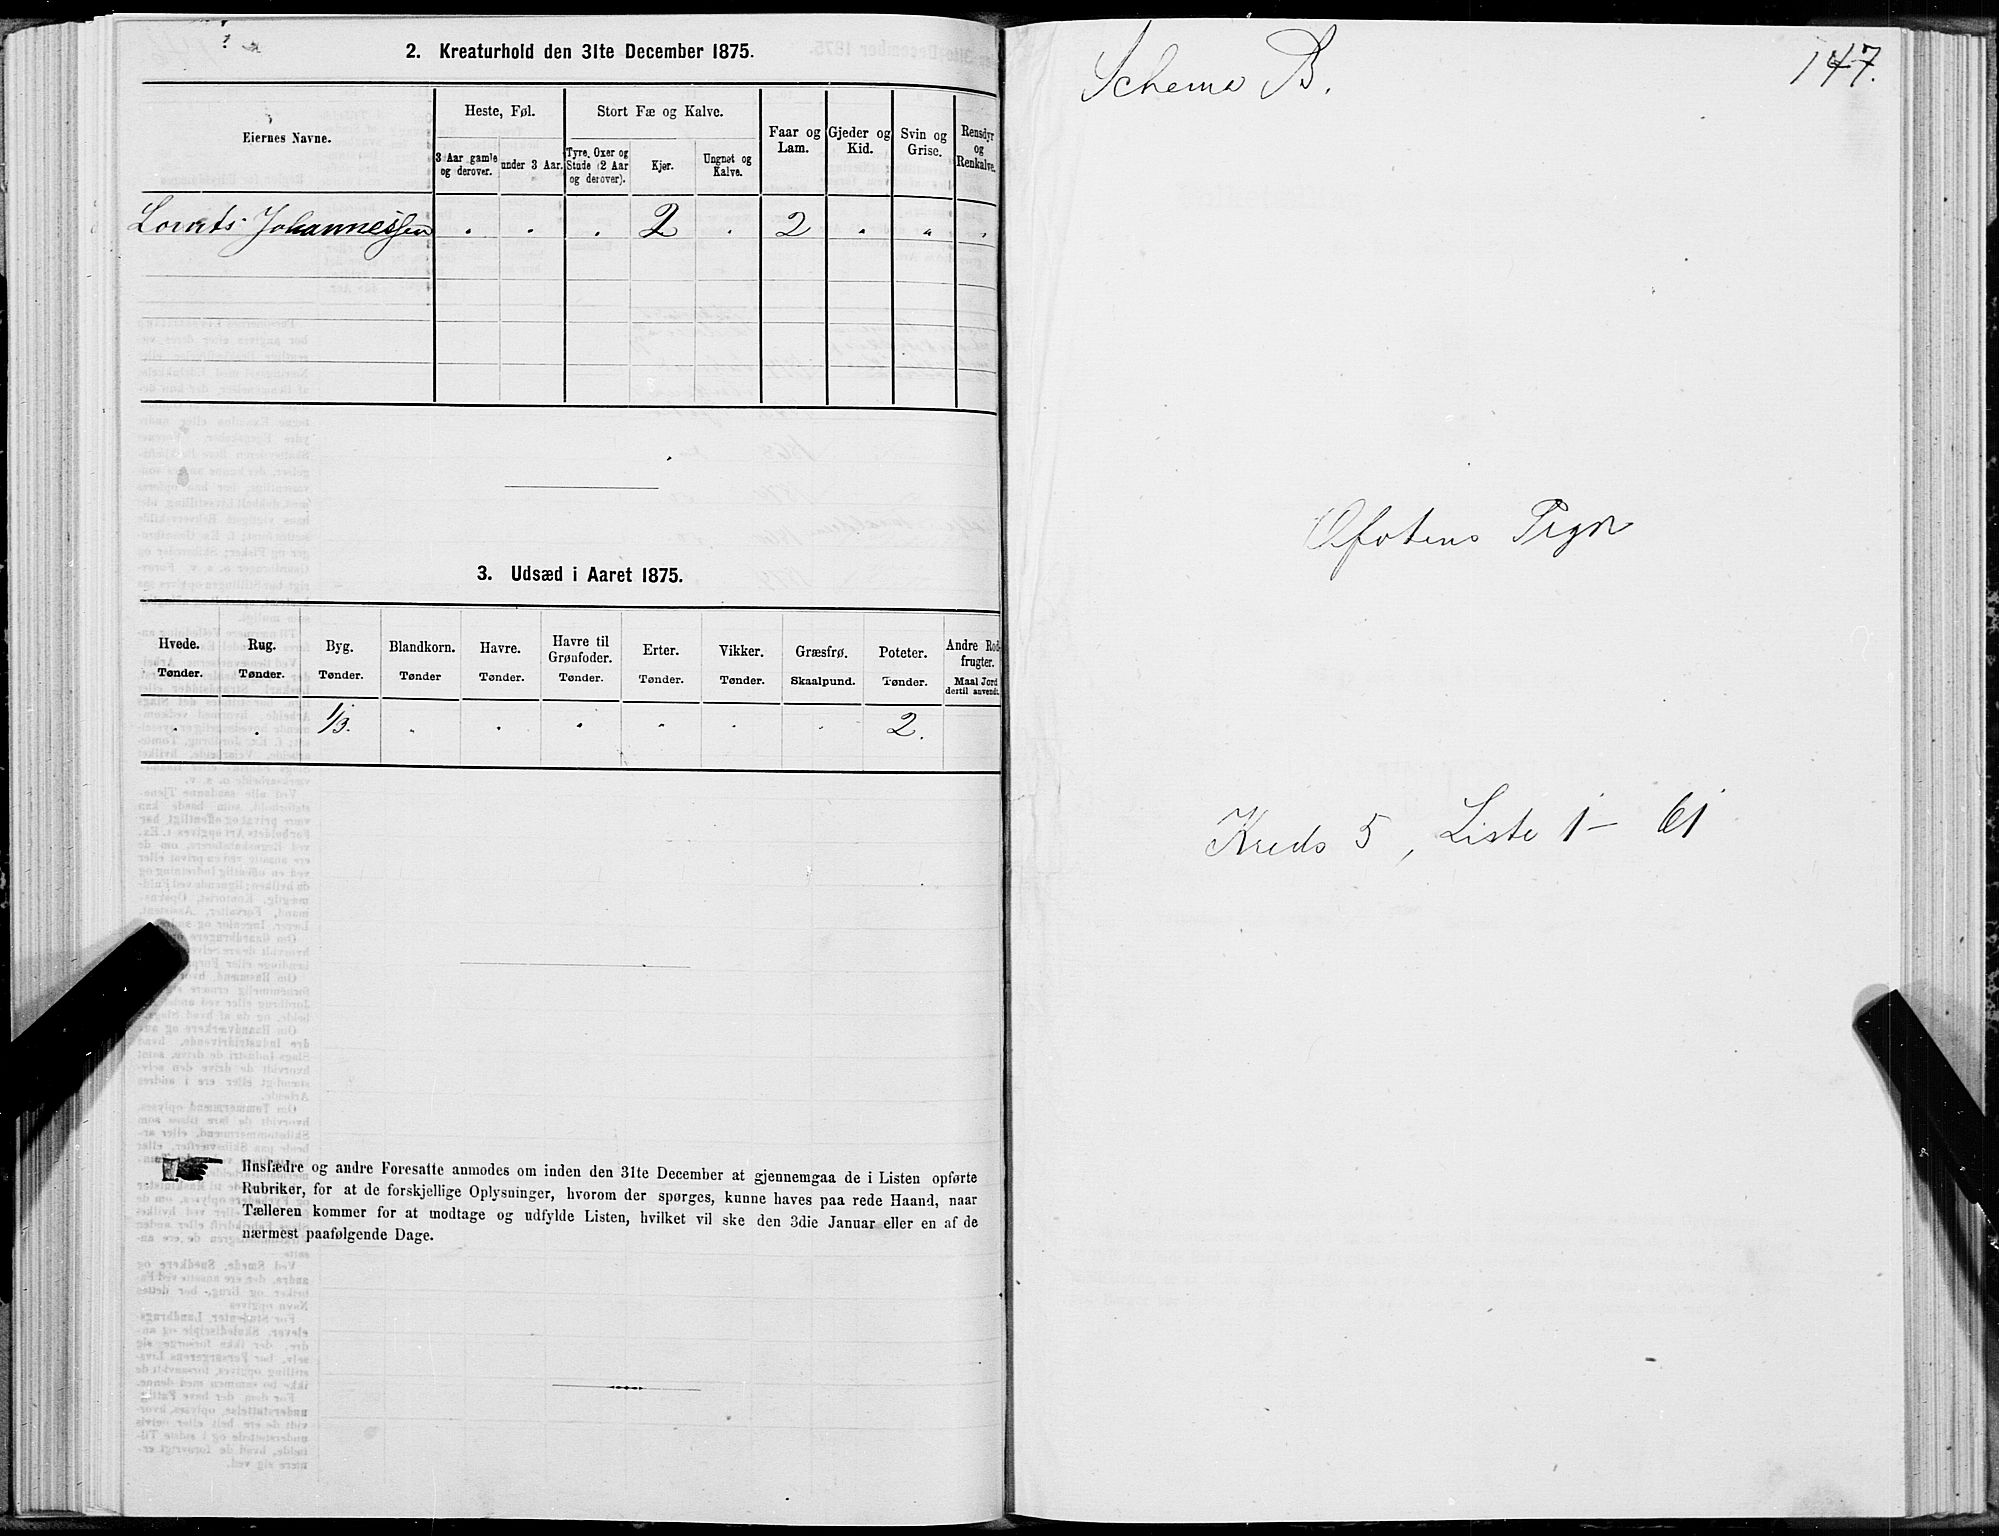 2. Kreaturhold den 31te December 1875.
Eiernes Navne.
Heste, Føl.
Stort Fæ og Kalve.
Faar og Lam.
Gjeder og Kid.
Svin og Grise.
Rensdyr og Renkalve.
3 Aar gamle og derover.
under 3 Aar.
Tyre, Oxer og Stude (2 Aar og derover).
Kjør.
Ungnøt og Kalve.
Lornts Johannessen " " " 2 " 2 " " "
3. Udsæd i Aaret 1875.
Hvede. Tønder.
Rug. Tønder.
Byg. Tønder.
Blandkorn. Tønder
Havre. Tønder.
Havre til Grønfoder. Tønder.
Erter. Tønder.
Vikker. Tønder.
Græsfrø. Skaalpund.
Poteter. Tønder.
Andre Rodfrugter. Maal Jord dertil anvendt.
" " 1/3. " " " " " " 2.
Husfædre og andre Foresatte anmodes om inden den 31te December at gjennemgaa de i Listen opførte
Rubriker, for at de forskjellige Oplysninger, hvorom der spørges, kunne haves paa rede Haand, naar
Tælleren kommer for at modtage og udfylde Listen, hvilket vil ske den 3die Januar eller en af de
nærmest paafølgende Dage.
Schema B.
147.
Ofotens Prgr
Kreds 5, Liste 1 - 61